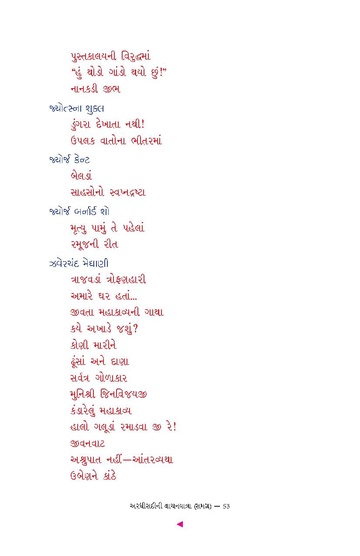 પુસ્તકાલયની વિરુદ્ધમાં
“હું થોડો ગાંડો થયો છું!”
નાનકડી જીભ
જ્યોત્સ્ના શુક્લ
ડુંગરા દેખાતા નથી!
ઉપલક વાતોના ભીતરમાં
જ્યૉર્જ કેન્ટ
બેલડાં
સાહસોનો સ્વપ્નદ્રષ્ટા
જ્યૉર્જ બર્નાર્ડ શૉ
મૃત્યુ પામું તે પહેલાં
રમૂજની રીત
ઝવેરચંદ મેઘાણી
ત્રાજવડાં ત્રોફણહારી
અમારે ઘર હતાં...
જીવતા મહાકાવ્યની ગાથા
કયે અખાડે જશું?
કોણી મારીને
ઢૂંસાં અને દાણા
સર્વત્ર ગોળાકાર
મુનિશ્રી જિનવિજયજી
કંડારેલું મહાકાવ્ય
હાલો ગલૂડાં રમાડવા જી રે!
જીવનવાટ
અશ્રુપાત નહીં—આંતરવ્યથા
ઉબેણને કાંઠે
અરધી સદીની વાચનયાત્રા (સમગ્ર) — 53